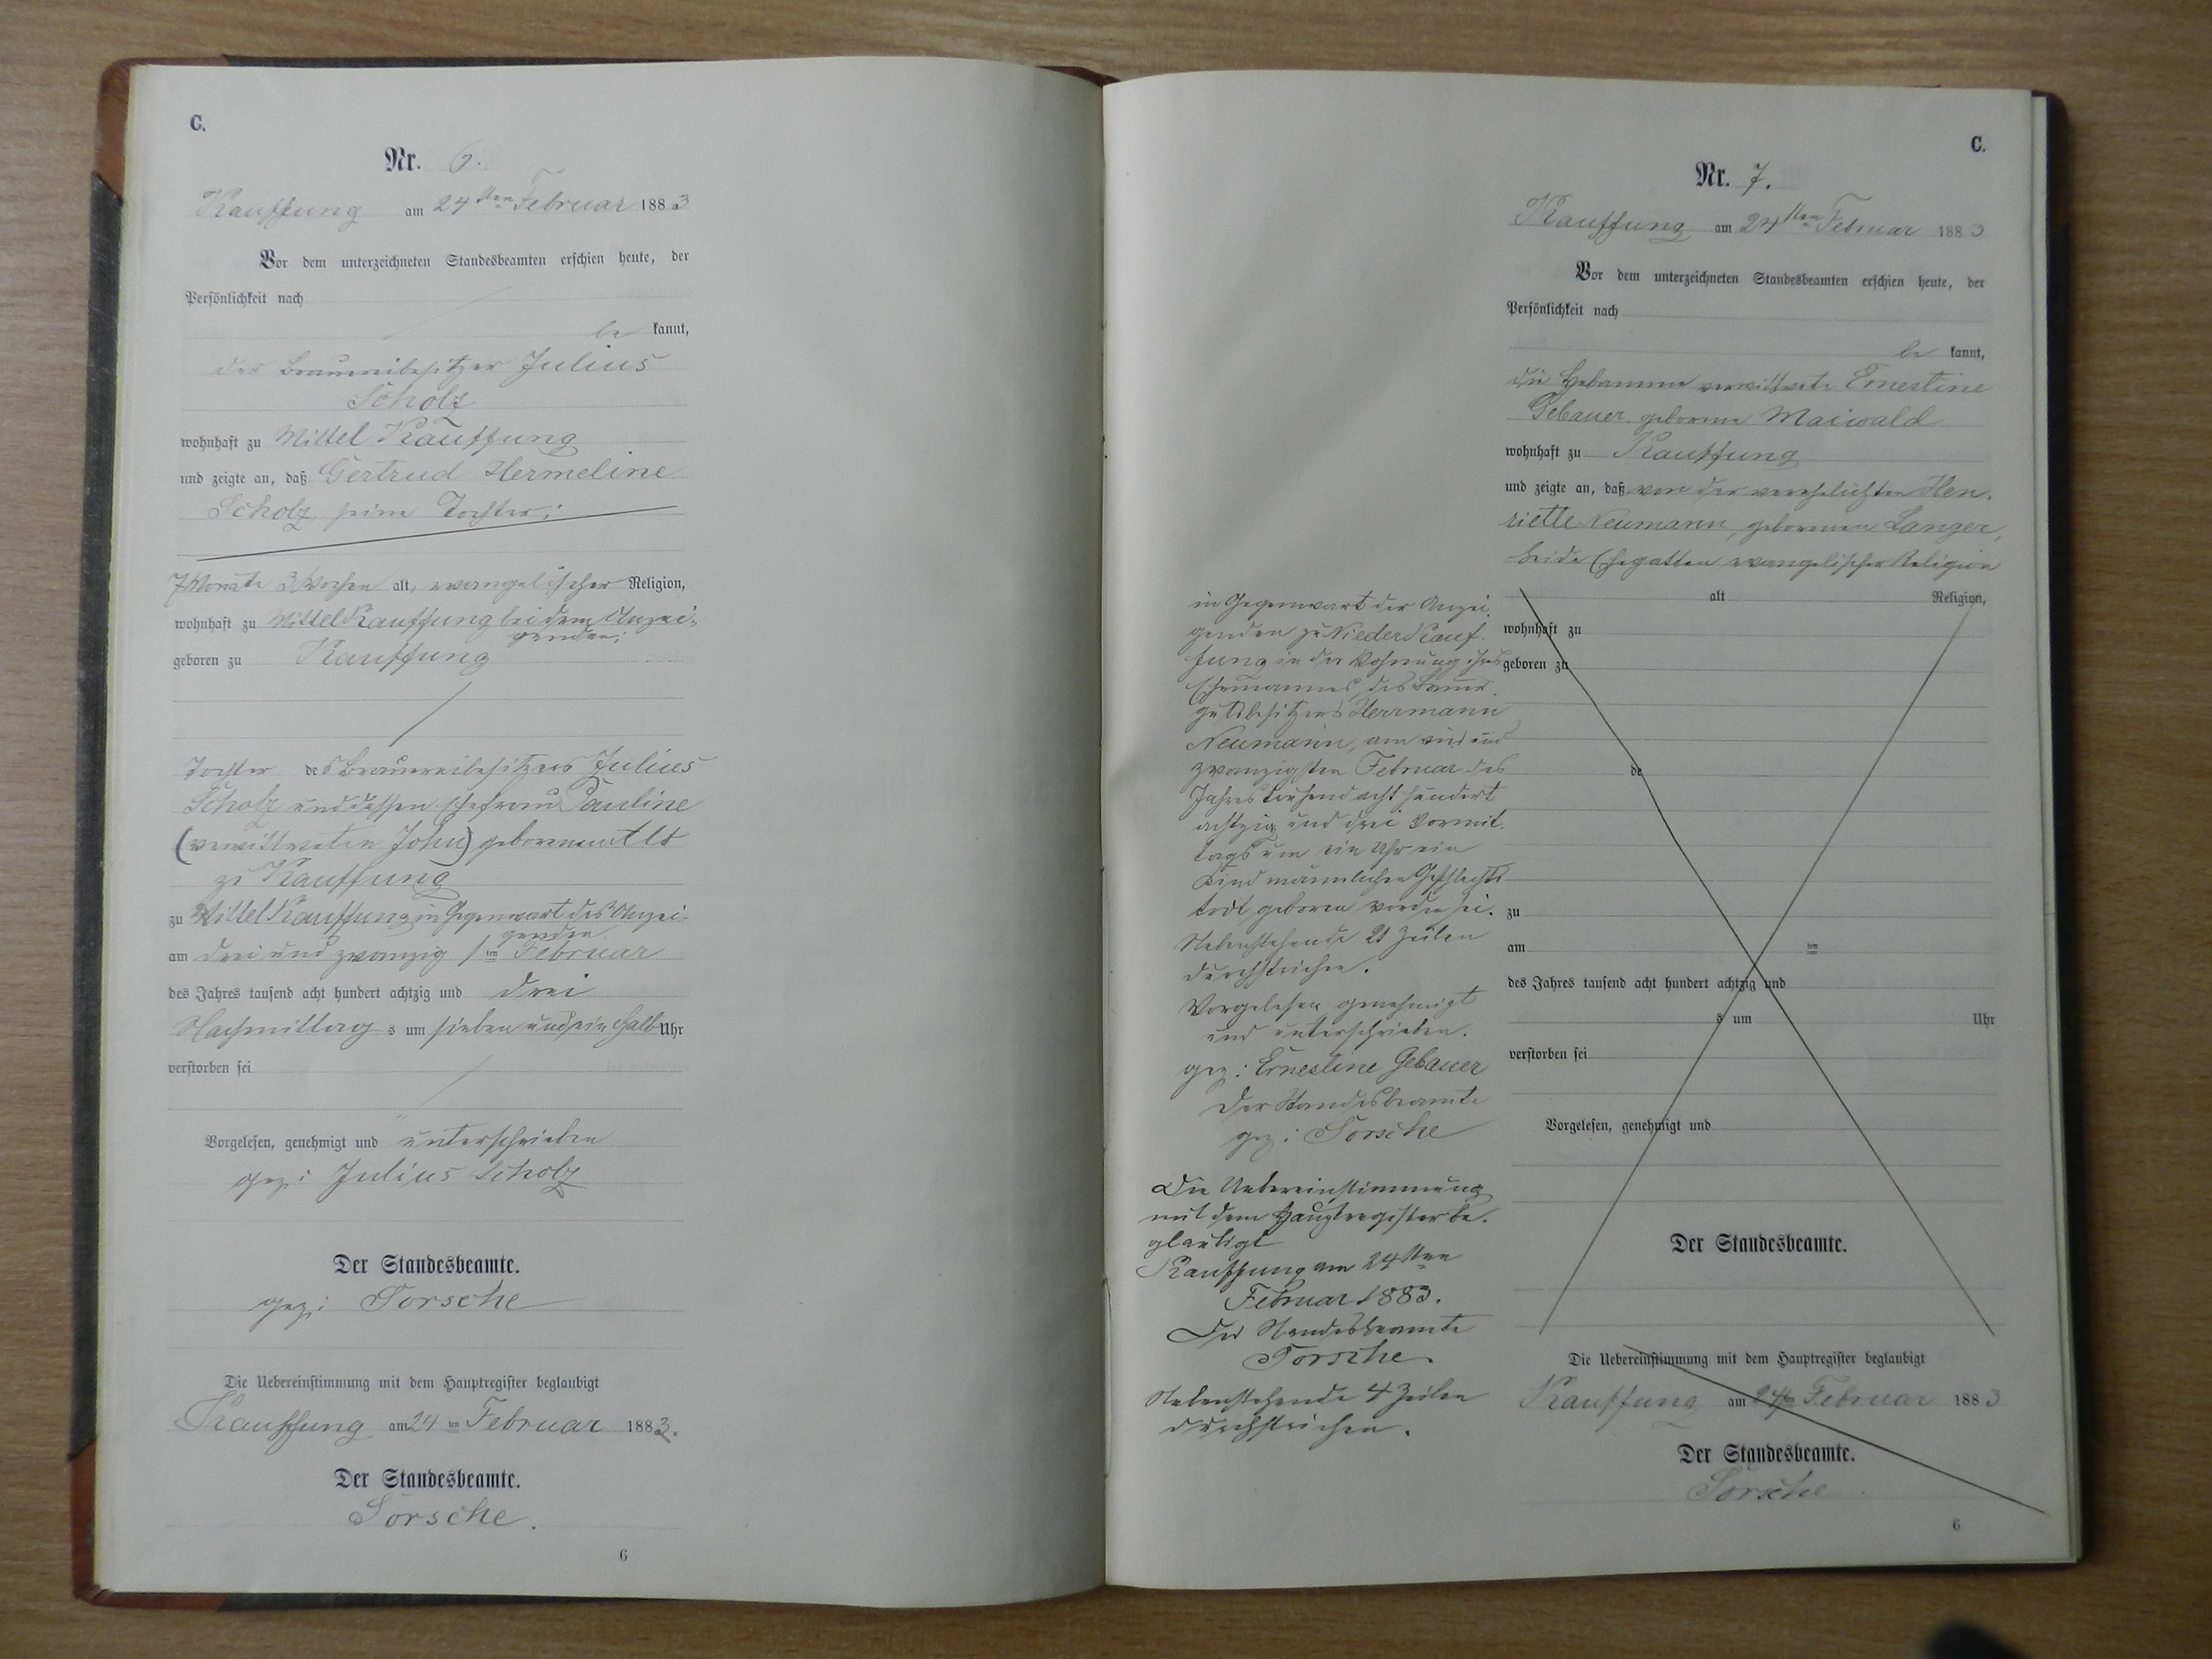 C.
Nr. 6.
Kauffung am 24ten Februar 1883
Vor dem unterzeichneten Standesbeamten erschien heute, der
Persönlichkeit nach
be kannt,
der Brauereibesitzer Julius
Scholz
wohnhaft zu Mittel Kauffung
und zeigte an, daß Gertrud Hermeline
Scholz, seine Tochter;
7 Monate 3 Wochen alt, evangelischer Religion,
wohnhaft zu Mittel Kauffung bei dem Anzei-
genden;
geboren zu Kauffung
Tochter des Brauereibesitzers Julius
Scholz und dessen Ehefrau Pauline
(verwittweten John) geborenen Alt
zu Kauffung
zu Mittel Kauffung in Gegenwart des Anzei-
genden
am drei und zwanzig ten Februar
des Jahres tausend acht hundert achtzig und drei
Nachmittag s um sieben und ein halb Uhr
verstorben sei
Vorgelesen, genehmigt und unterschrieben
gez: Julius Scholz
Der Standesbeamte.
gez: Torsche
Die Uebereinstimmung mit dem Hauptregister beglaubigt
Kauffung am 24 ten Februar 1883.
Der Standesbeamte.
Torsche.
6
C.
Nr. 7.
Kauffung am 24ten Februar 1883
Vor dem unterzeichneten Standesbeamten erschien heute, der
Persönlichkeit nach
be kannt,
die Hebamme verwittwete Ernestine
Gebauer, geborene Maiwald
wohnhaft zu Kauffung
und zeigte an, daß von der verehelichten Hen-
riette Neumann, geborenen Langer,
beide Ehegatten evangelischer Religion
alt Religion,
wohnhaft zu
geboren zu
de
zu
am ten
des Jahres tausend acht hundert achtzig und
s um Uhr
verstorben sei
Vorgelesen, genehmigt und
Der Standesbeamte.
Die Uebereinstimmung mit dem Hauptregister beglaubigt
Kauffung am 24ten Februar 1883
Der Standesbeamte.
Torsche
6
in Gegenwart der Anzei-
genden zu Nieder Kauf-
fung in der Wohnung ihres
Ehemannes, des Bauer-
gutsbesitzers Herrmann
Neumann, am und
zwanzigsten Februar des
Jahres tausend acht hundert
achtzig und drei Vormit-
tags um ein Uhr ein
Kind männlichen Geschlechts
todt geboren worden sei.
Nebenstehende 21 Zeilen
durchstrichen.
Vorgelesen, genehmigt
und unterschrieben.
gez: Ernestine Gebauer
Der Standesbeamte
gez: Torsche
Die Uebereinstimmung
mit dem Hauptregister be-
glaubigt
Kauffung am 24ten
Februar 1883.
Der Standesbeamte
Torsche.
Nebenstehende 4 Zeilen
durchstrichen.